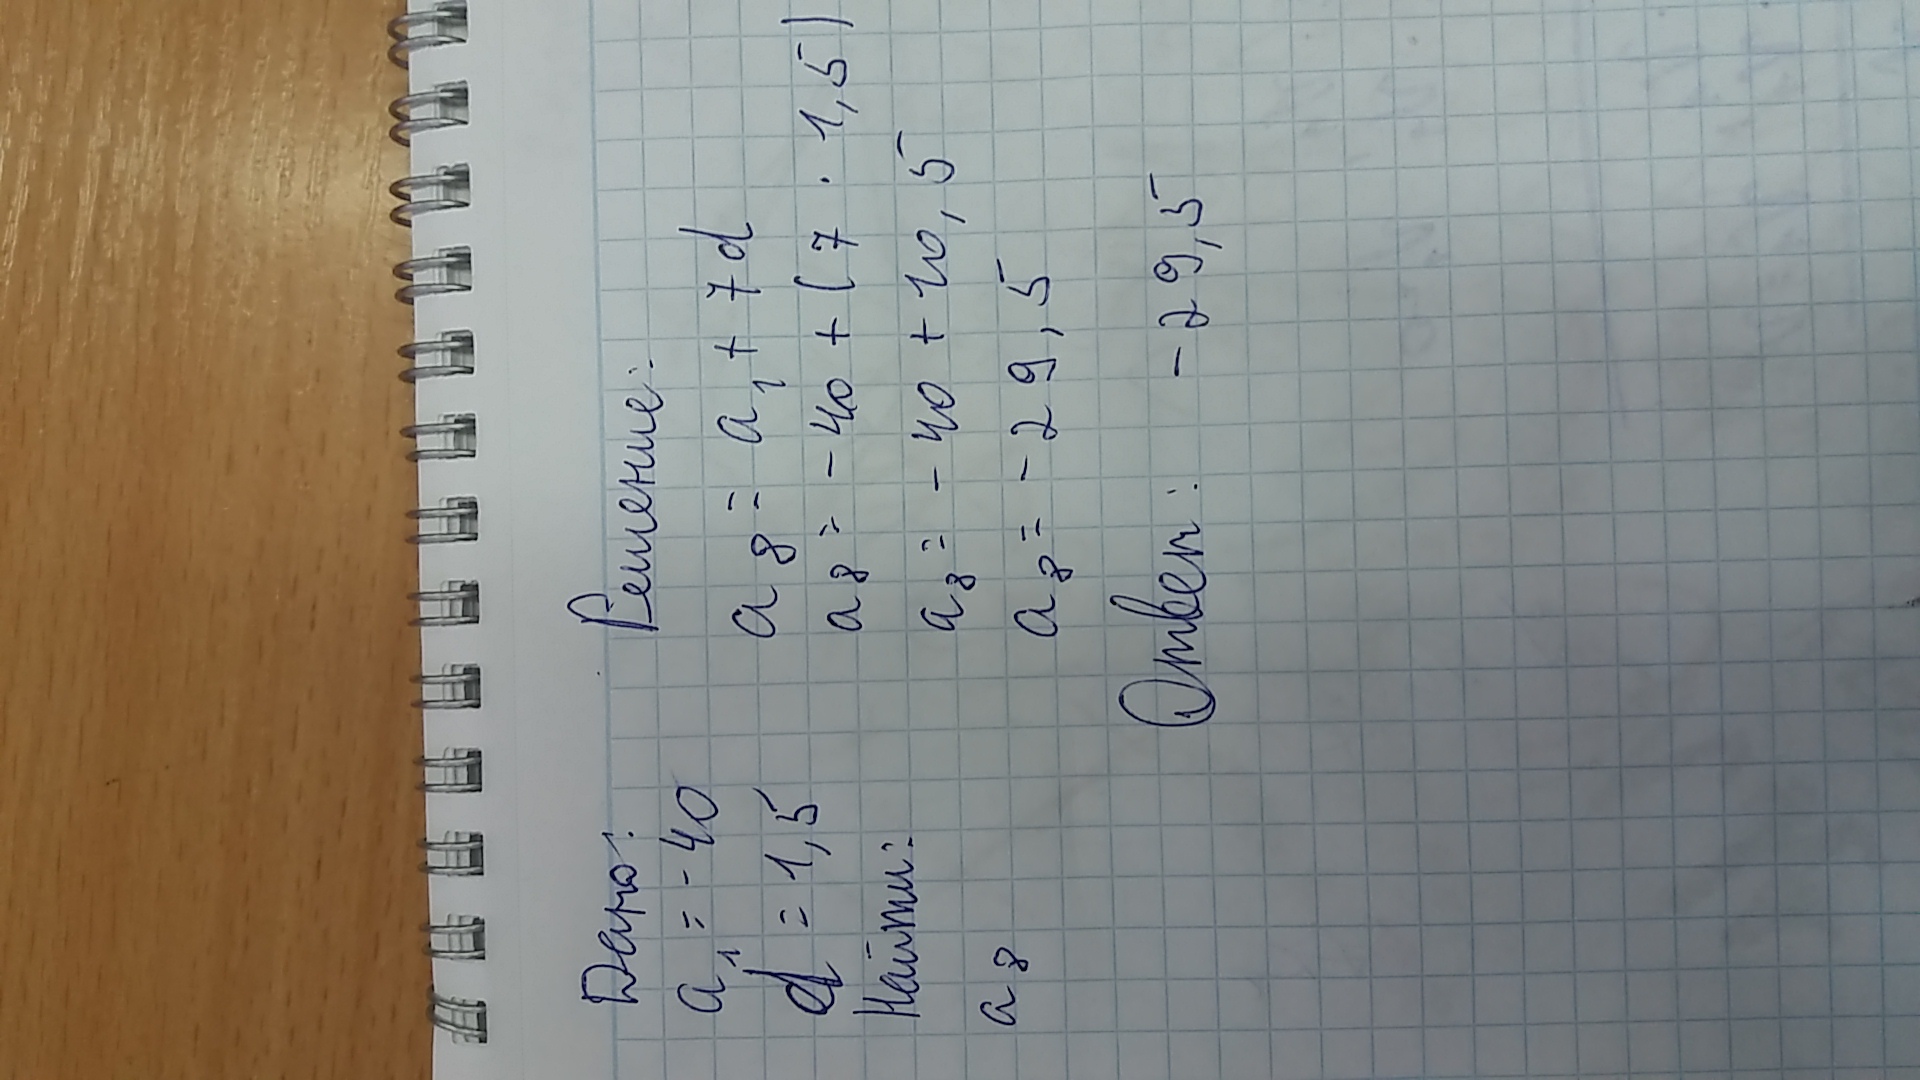 Дано:
a₁ = -40
d = 1,5
Найти:
a₈
Решение:
a₈ = a₁ + 7d
a₈ = -40 + (7 · 1,5)
a₈ = -40 + 10,5
a₈ = -29,5
Ответ: -29,5